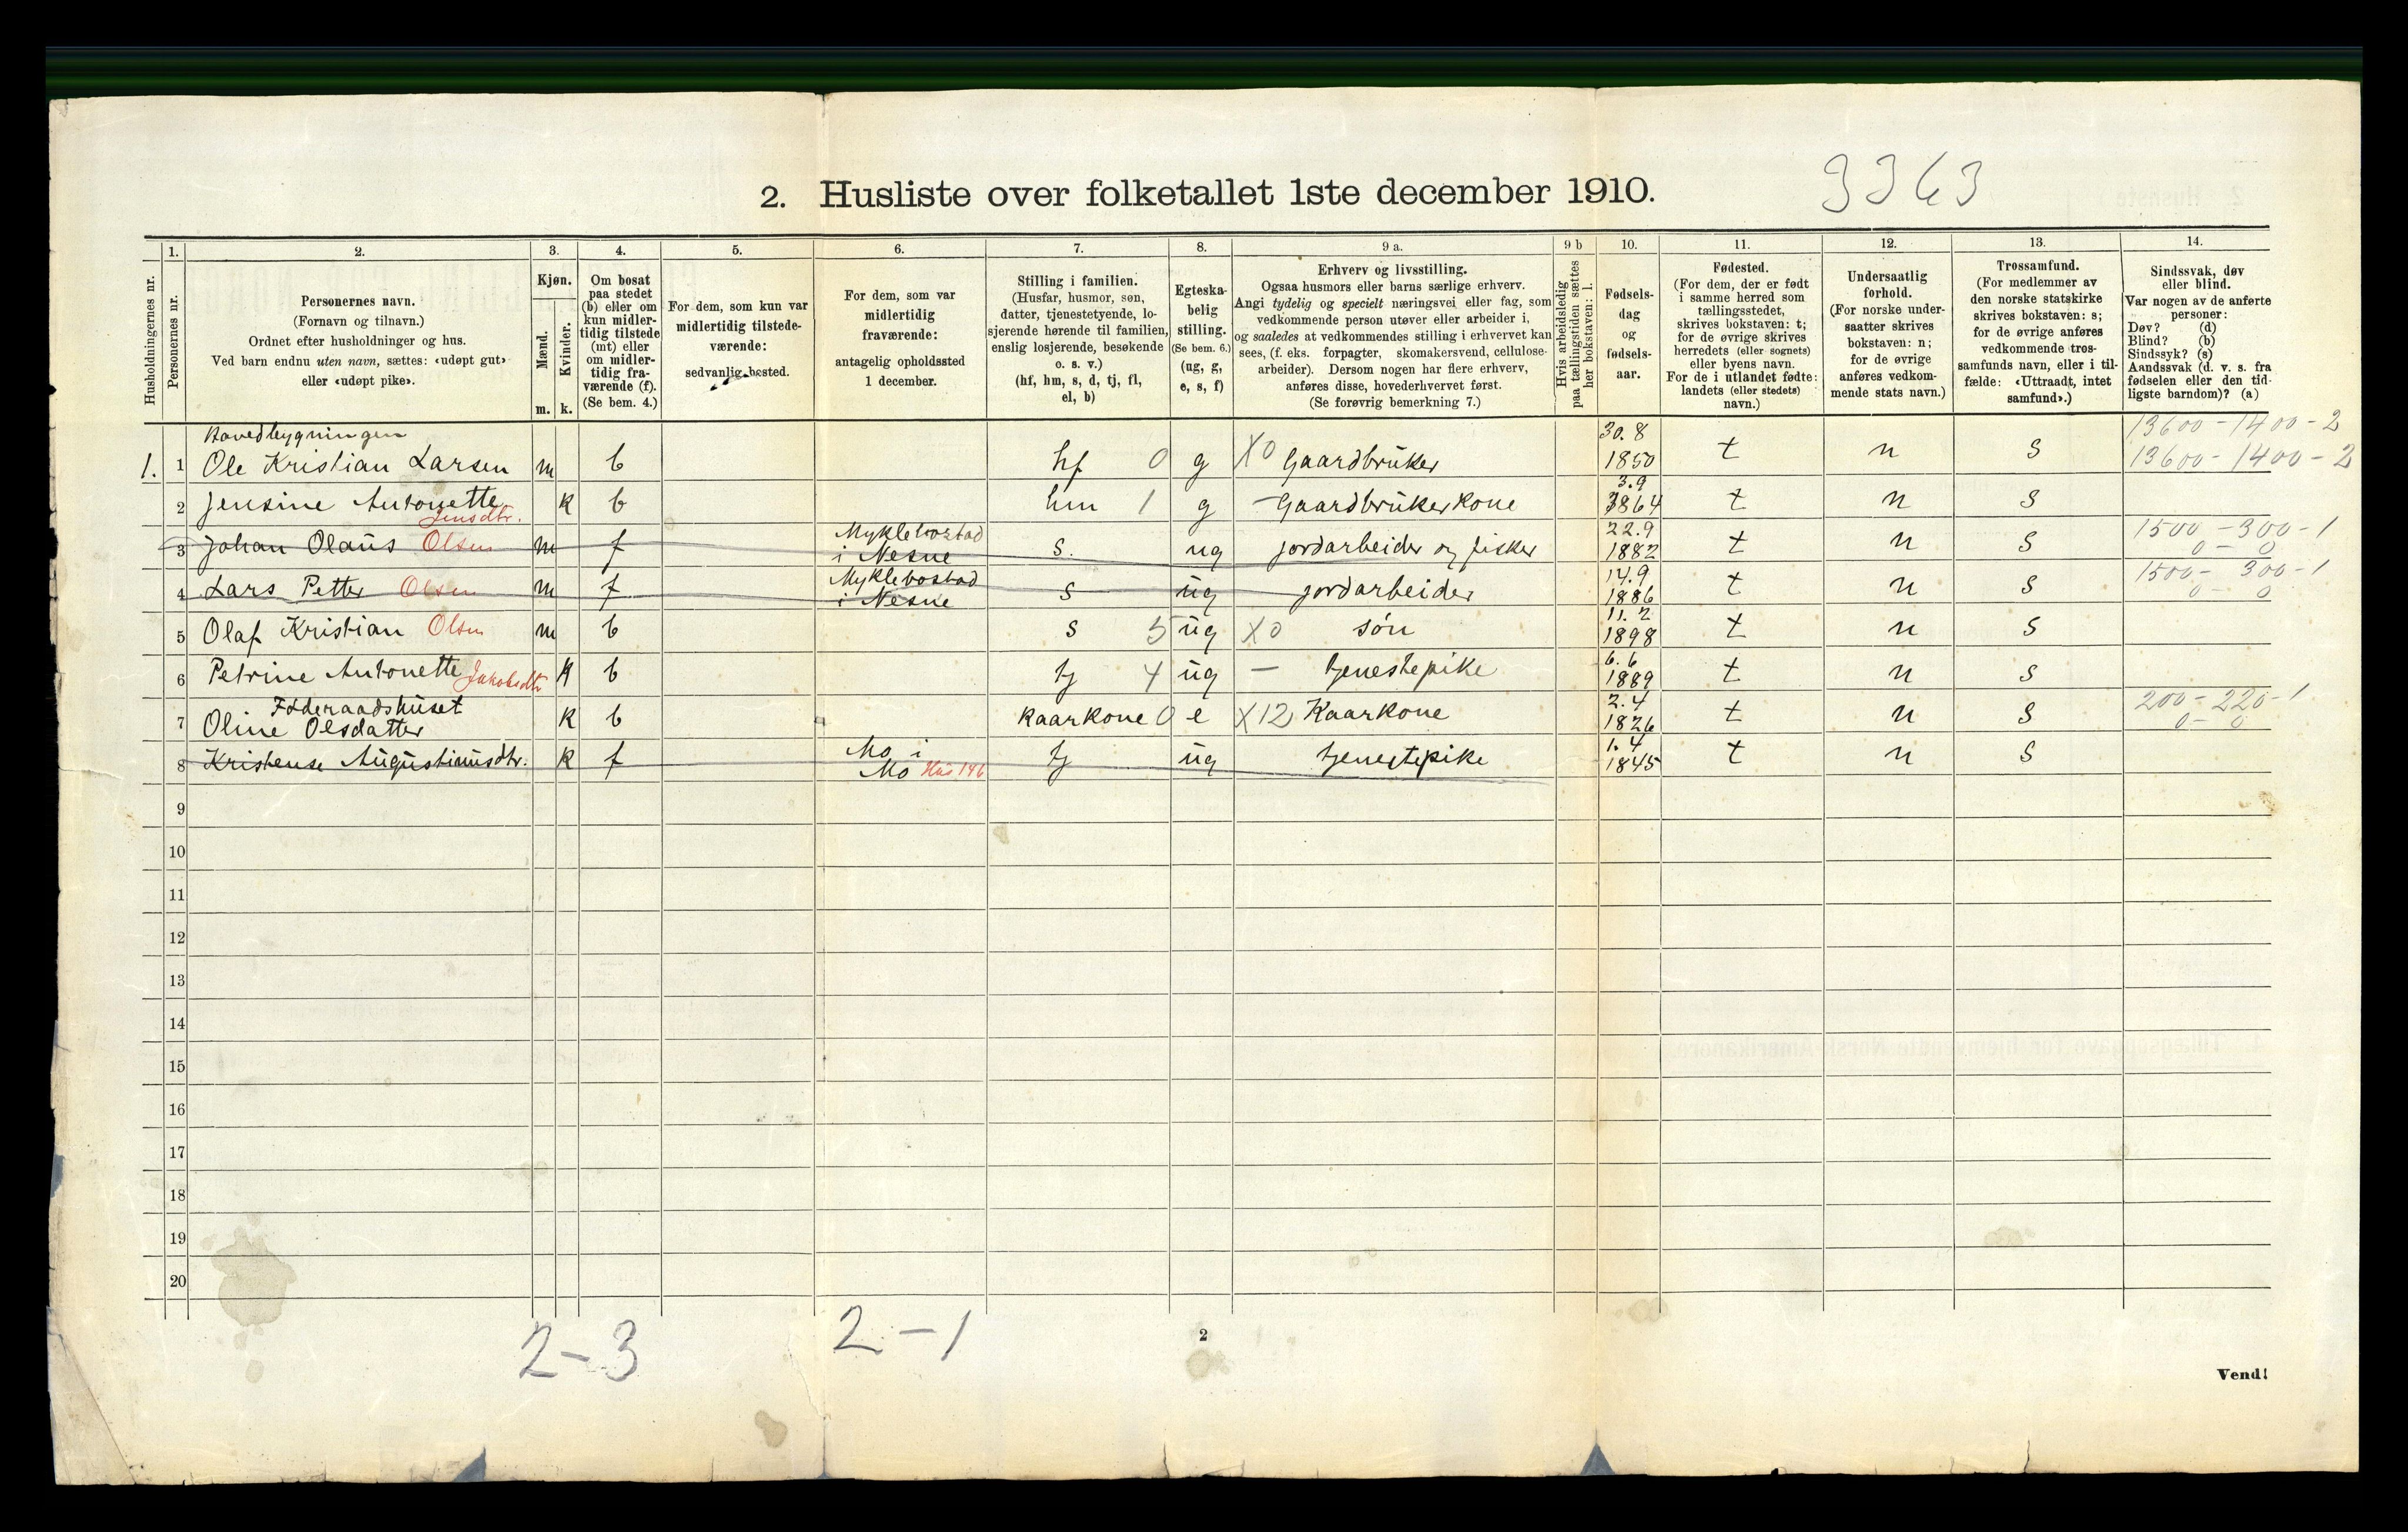 2. Husliste over folketallet 1ste december 1910.
3363
Husholdningernes nr.
1.
Personernes nr.
2.
Personernes navn.
(Fornavn og tilnavn.)
Ordnet efter husholdninger og hus.
Ved barn endnu uten navn, sættes: «udøpt gut»
eller «udøpt pike».
3.
Kjøn.
Mænd.
Kvinder.
m. k.
4.
Om bosat
paa stedet
(b) eller om
kun midler-
tidig tilstede
(mt) eller
om midler-
tidig fra-
værende (f).
(Se bem. 4.)
5.
For dem, som kun var
midlertidig tilstede-
værende:
sedvanlig bosted.
6.
For dem, som var
midlertidig
fraværende:
antagelig opholdssted
1 december.
7.
Stilling i familien.
(Husfar, husmor, søn,
datter, tjenestetyende, lo-
sjerende hørende til familien,
enslig losjerende, besøkende
o. s. v.)
(hf, hm, s, d, tj, fl,
el, b)
8.
Egteska-
belig
stilling.
(Se bem. 6.)
(ug, g,
e, s, f)
9 a.
Erhverv og livsstilling.
Ogsaa husmors eller barns særlige erhverv.
Angi tydelig og specielt næringsvei eller fag, som
vedkommende person utøver eller arbeider i,
og saaledes at vedkommendes stilling i erhvervet kan
sees, (f. eks. forpagter, skomakersvend, cellulose-
arbeider). Dersom nogen har flere erhverv,
anføres disse, hovederhvervet først.
(Se forøvrig bemerkning 7.)
9 b
Hvis arbeidsledig
paa tællingstiden sættes
her bokstaven: l.
10.
Fødsels-
dag
og
fødsels-
aar.
11.
Fødested.
(For dem, der er født
i samme herred som
tællingsstedet,
skrives bokstaven: t;
for de øvrige skrives
herredets (eller sognets)
eller byens navn.
For de i utlandet fødte:
landets (eller stedets)
navn.)
12.
Undersaatlig
forhold.
(For norske under-
saatter skrives
bokstaven: n;
for de øvrige
anføres vedkom-
mende stats navn.)
13.
Trossamfund.
(For medlemmer av
den norske statskirke
skrives bokstaven: s;
for de øvrige anføres
vedkommende tros-
samfunds navn, eller i til-
fælde: «Uttraadt, intet
samfund».)
14.
Sindssvak, døv
eller blind.
Var nogen av de anførte
personer:
Døv? (d)
Blind? (b)
Sindssyk? (s)
Aandssvak (d. v. s. fra
fødselen eller den tid-
ligste barndom)? (a)
Hovedbygningen 30.8 13600-1400-2
1. 1 Ole Kristian Larsen m b hf 0 g X0 Gaardbruker 1850 t n s 13600-1400-2
3.9
2 Jensine Antonette Jensdtr. k b hm 1 g - Gaardbrukerkone 1864 t n s
Myklebostad 22.9 1500-300-1
3 Johan Olaus Olsen m f i Nesne s. ug jordarbeider og fisker 1882 t n s 0-0
Myklebostad 14.9 1500-300-1
4 Lars Petter Olsen m f i Nesne s ug jordarbeider 1886 t n s 0-0
11.2
5 Olaf Kristian Olsen m b s 5 ug X0 søn 1898 t n s
6.6
6 Petrine Antonette Jakobsdtr k b tj 4 ug - tjenestepike 1889 t n s
Føderaadshuset 2.4 200-220-1
7 Oline Olsdatter k b kaarkone 0 e X12 Kaarkone 1826 t n s 0-0
Mo i 1.4
8 Kristense Augustinusdtr. k f Mo Hus 146 tj ug tjenestepike 1845 t n s
9
10
11
12
13
14
15
16
17
18
19
20
2-3 2-1
2
Vend!